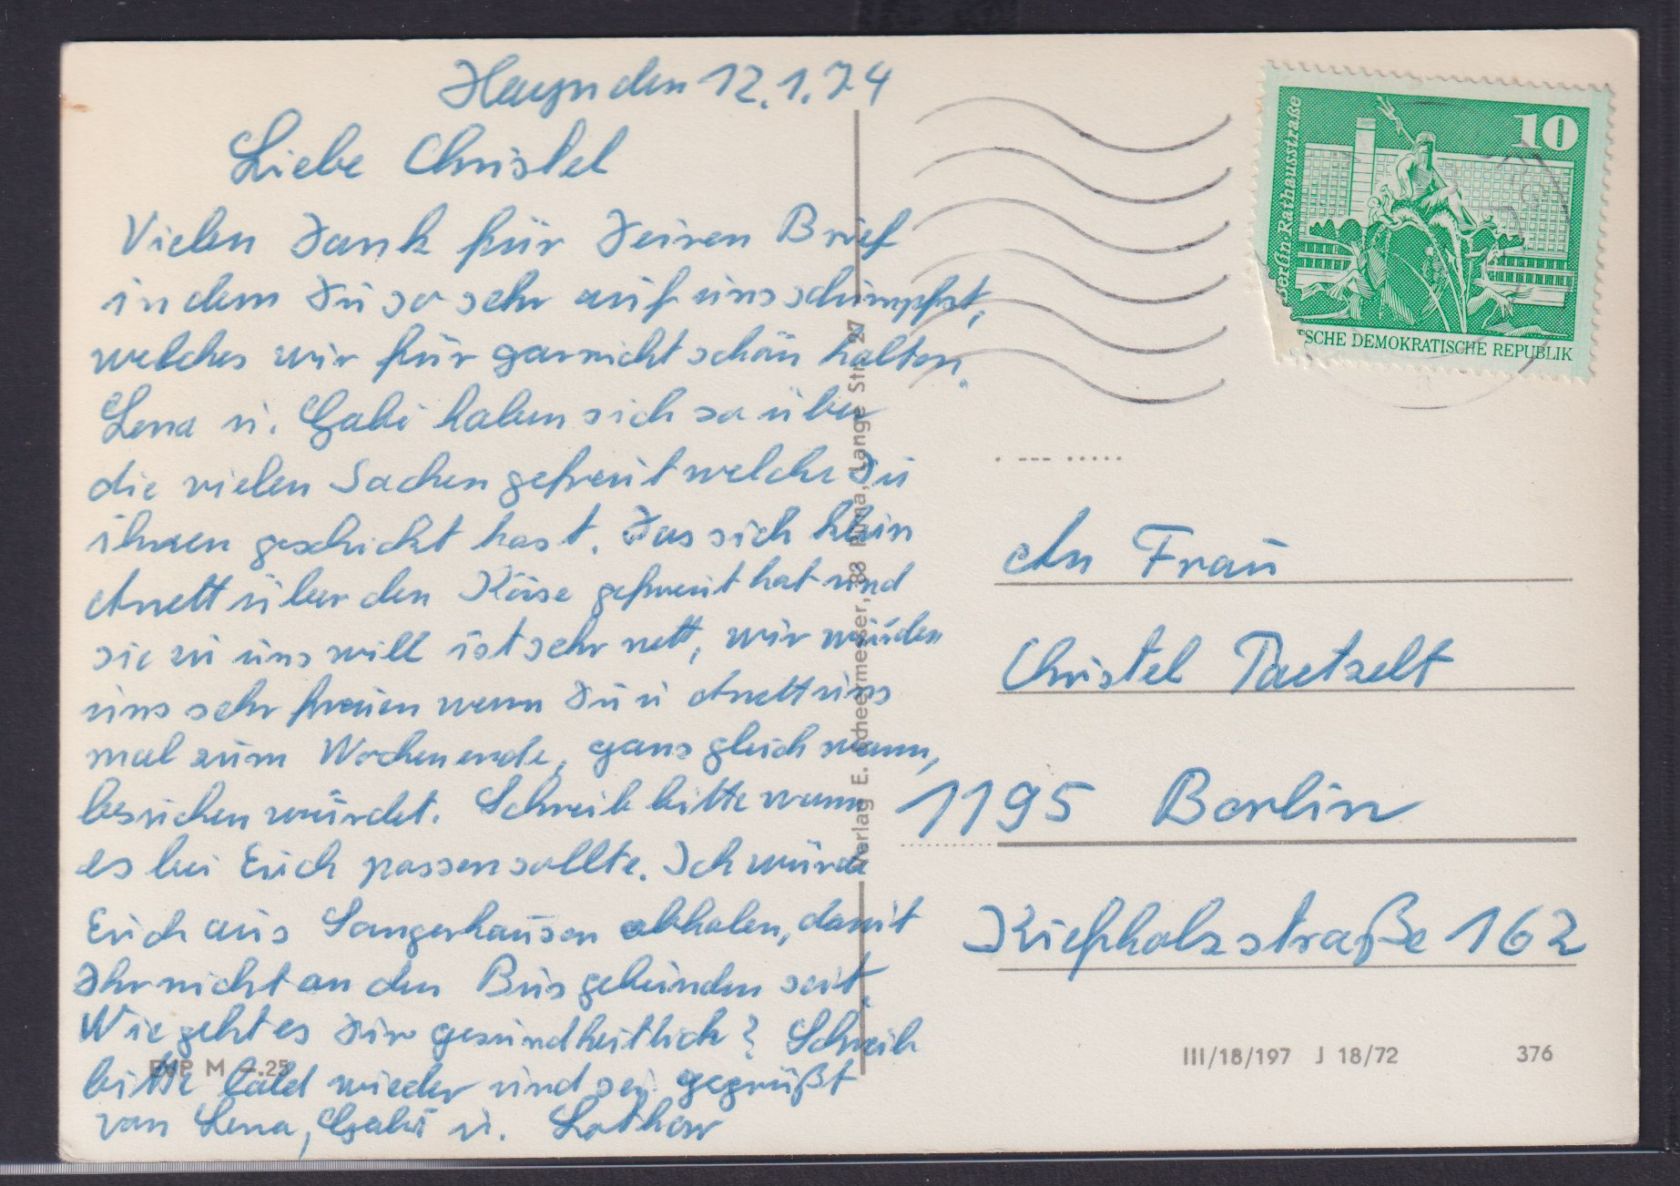 Hayn den 12.1.74
Liebe Christel
Vielen Dank für Deinen Brief
in dem Du so sehr auf uns schimpfst,
welches wir für garnicht schön halten.
Lena u. Gabi haben sich so über
die vielen Sachen gefreut welche Du
ihnen geschickt hast. Das sich klein
Anett über den Käse gefreut hat und
sie zu uns will ist sehr nett, wir würden
uns sehr freuen wenn Du u Anett uns
mal zum Wochenende, ganz gleich wann,
besuchen würdet. Schreib bitte wann
es bei Euch passen sollte. Ich würde
Euch aus Sangerhausen abholen, damit
Ihr nicht an den Bus gebunden seit.
Wie geht es Dir gesundheitlich? Schreib
bitte bald wieder und sei gegrüßt
von Lena, Gabi u. Lothar
EVP M –.25
Verlag E. Scheermesser, 83 Pirna, Lange Str. 27
Berlin-Rathausstraße
10
TSCHE DEMOKRATISCHE REPUBLIK
An Frau
Christel Paetzelt
1195 Berlin
Kiefholzstraße 162
III/18/197 J 18/72
376